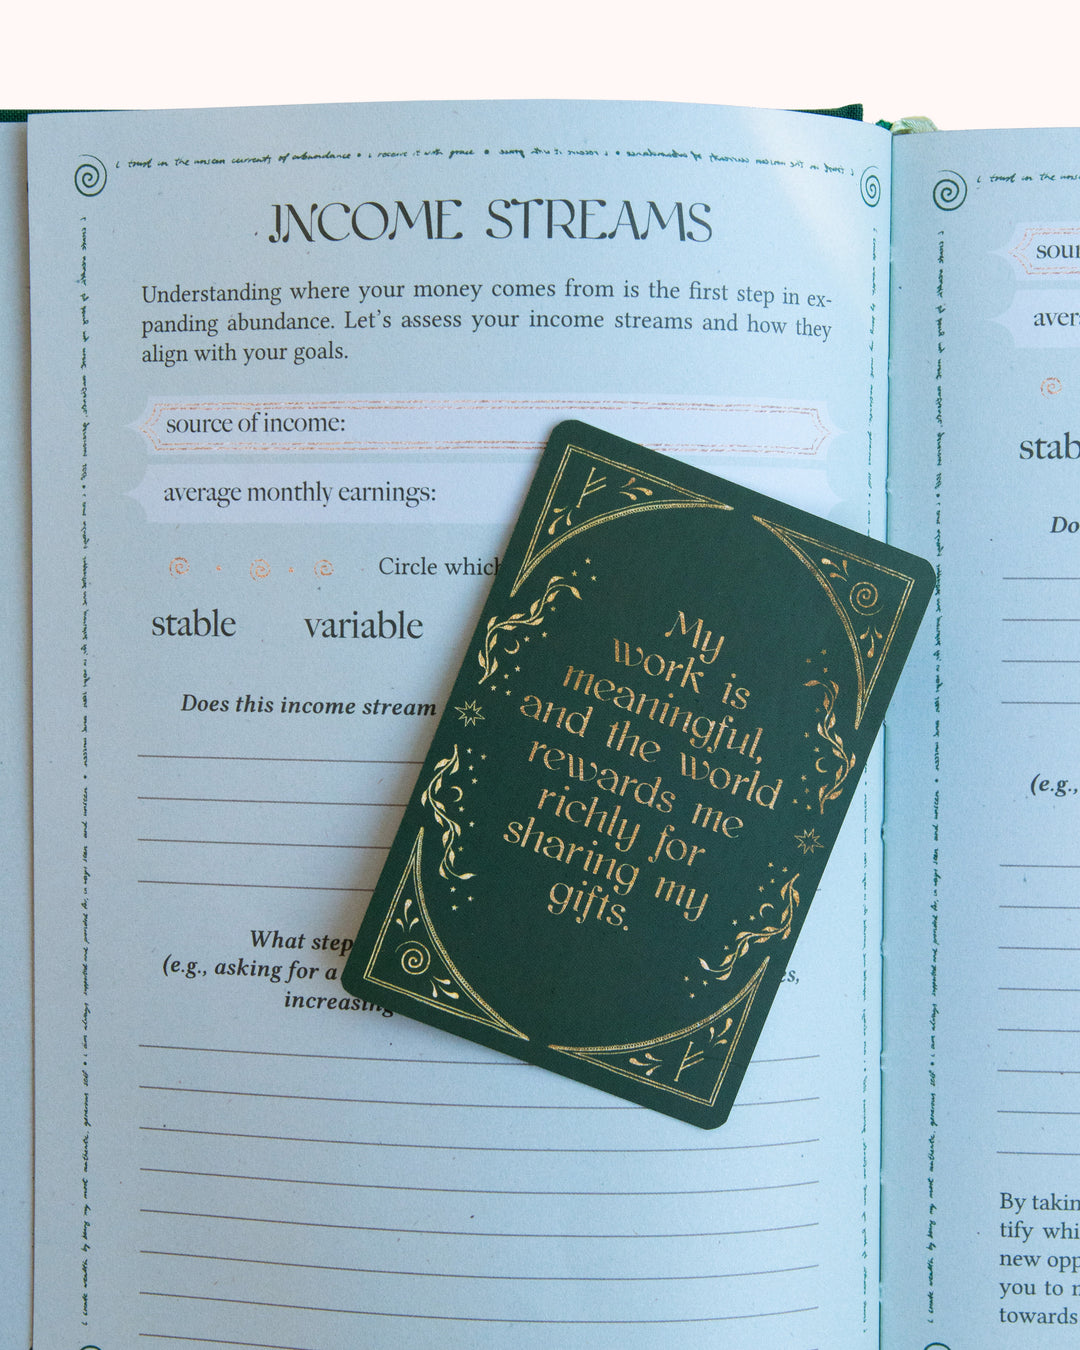 i trust in the unseen currents of abundance • i receive it with grace •
INCOME STREAMS
Understanding where your money comes from is the first step in ex-
panding abundance. Let's assess your income streams and how they
align with your goals.
source of income:
average monthly earnings:
Circle which
stable variable
Does this income stream
What step
(e.g., asking for a
increasing
My
work is
meaningful,
and the world
rewards me
richly for
sharing my
gifts.
i trust in the
sour
avera
stab
Do
(e.g.,
By takin
tify whi
new opp
you to
towards